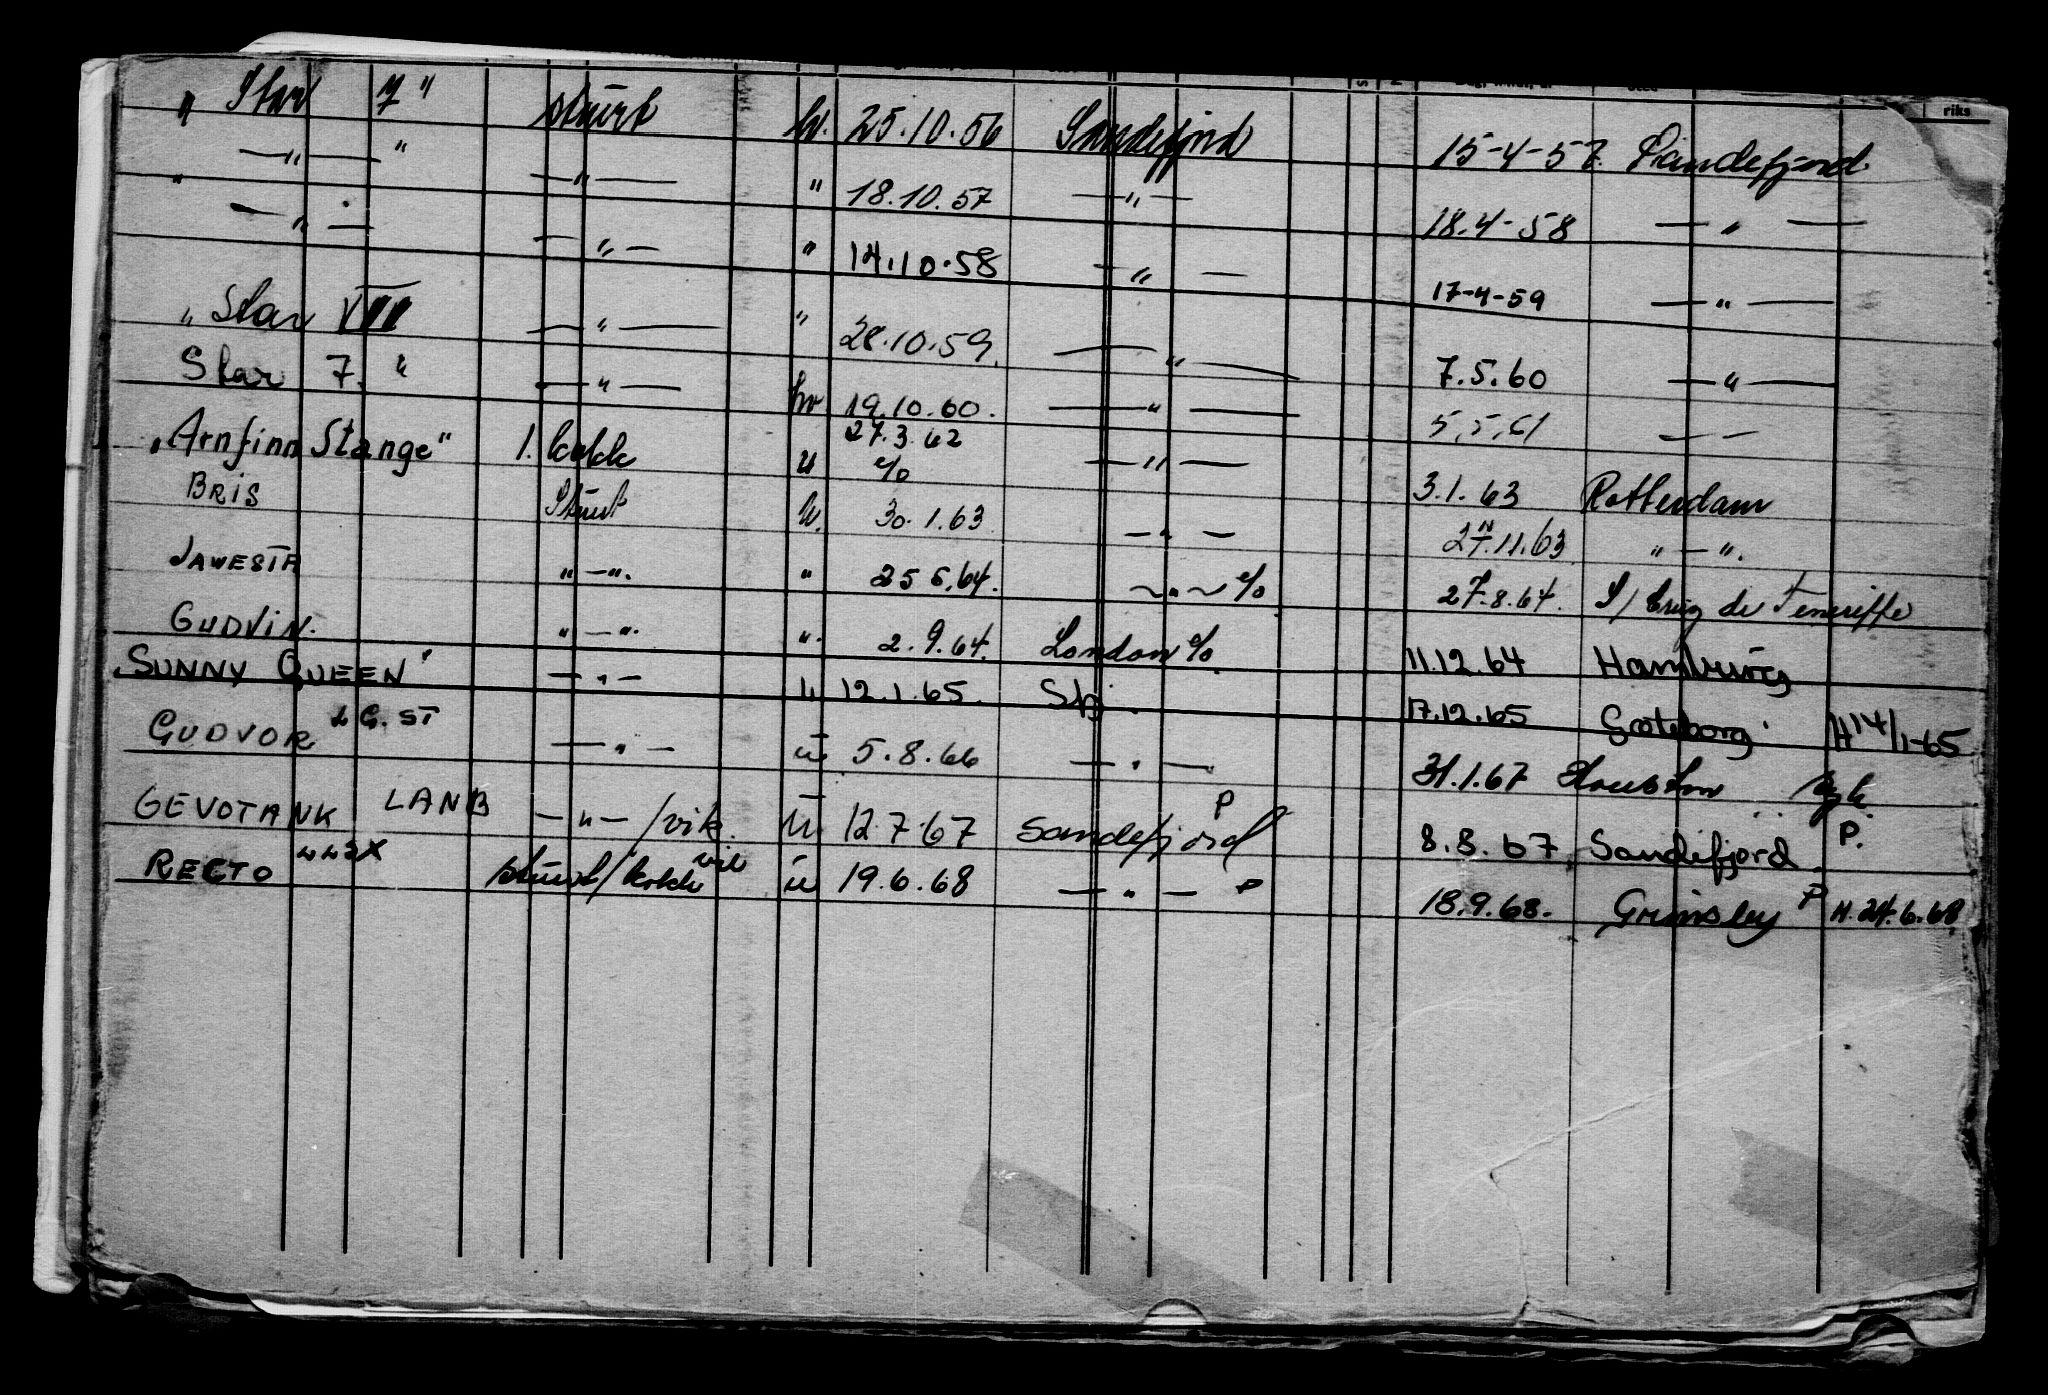 riks
„ Star 7" stuert hv. 25.10.56 Sandefjord 15-4-57 Sandefjord
—„— " —"— " 18.10.57 —"— 18.4-58 —"—
" —„— —„— " 14.10.58 —„— 17-4-59 —"—
„ Star VII —"— " 28.10.59. —"— 7.5.60 —"—
Star 7. " —"— hv 19.10.60. —"— 5.5.61 —
„Arnfinn Stange" 1. kokk u 27.3.62 % —"— 3.1.63 Rotterdam
BRIS Stuert h. 30.1.63 —"— 27.11.63 "—".
JAWESTA "—". " 25 6.64. ~"~ % 27.8.64. S/ Cruz de Teneriffe
GUDVIN. "—". ". 2.9.64. London % 11.12.64 Hamburg
SUNNY QUEEN' —"— u 12.1.65. Sfj. 17.12.65 Gøteborg H14/1-65
GUDVOR LGST —"— u 5.8.66 —"— 31.1.67 Houston
GEVOTANK LANB —"—/vik. u 12.7.67 Sandefjord P 8.8.67. Sandefjord P.
RECTO LLJX stuert/kokk vik u 19.6.68 —"— P 18.9.68. Grimsby P H.24.6.68.